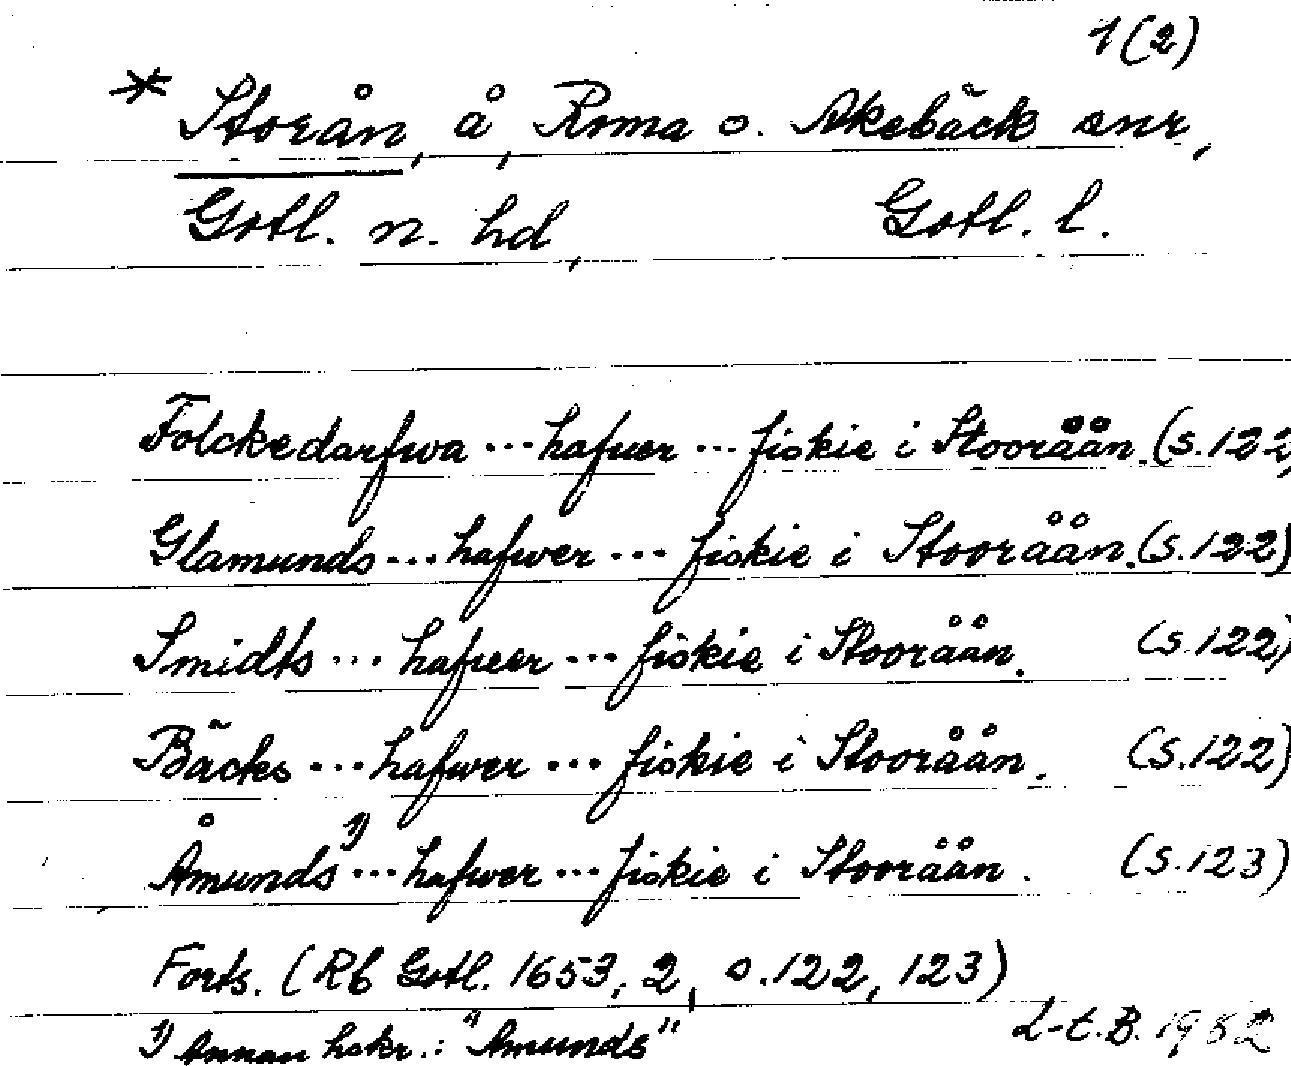 1(2)
* Storån, å, Roma o. Akebäck snr,
Gotl. n. hd, Gotl. l.
Folckedarfwa ... hafuer ... fiskie i Stooråån. (s.122)
Glamunds ... hafwer ... fiskie i Stooråån. (s.122)
Smidts ... hafuer ... fiskie i Stooråån. (s.122)
Bäcks ... hafwer ... fiskie i Stooråån. (s.122)
Åmunds 1) ... hafwer ... fiskie i Stooråån. (s.123)
Forts. (Rb Gotl. 1653, 2, s.122, 123)
1) Annan hskr.: "Amunds"
L-t.B. 1982